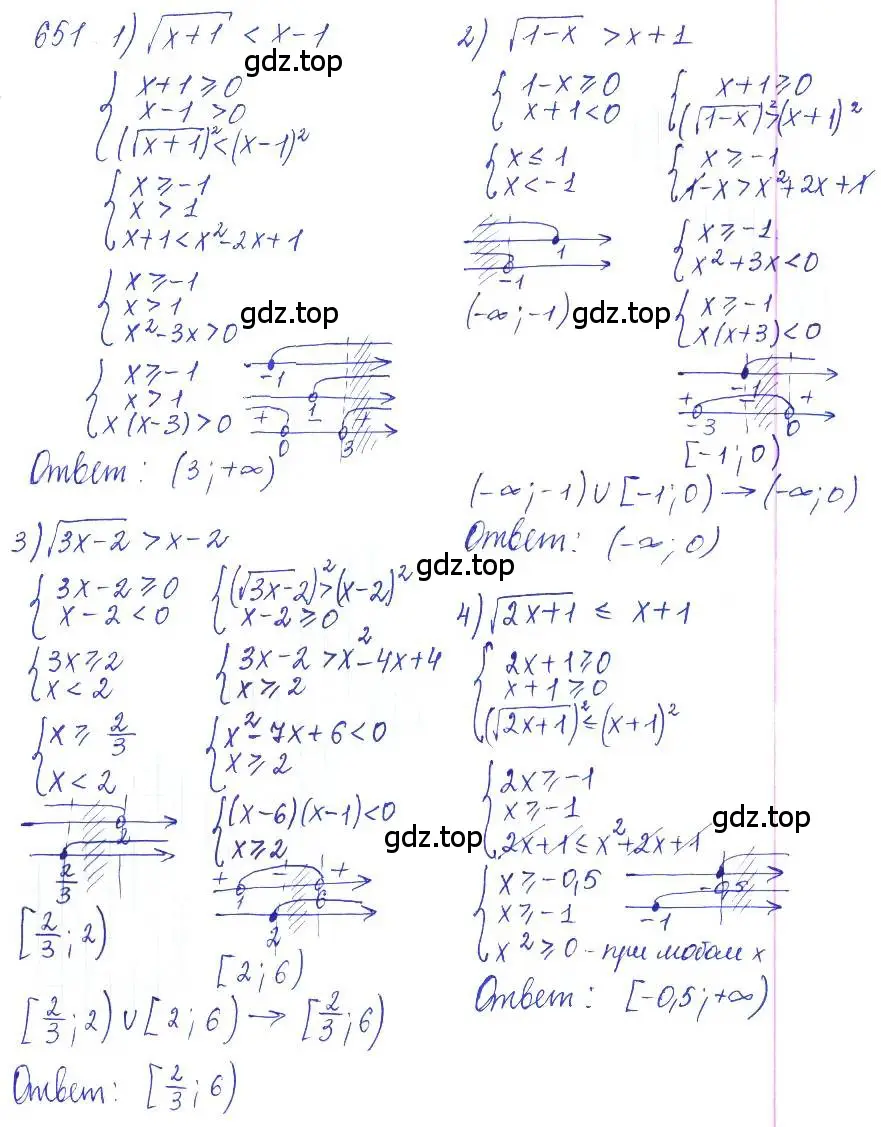 651 1) √(x+1) < x-1
{ x+1 ⩾ 0
x-1 > 0
(√(x+1))² < (x-1)²
{ x ⩾ -1
x > 1
x+1 < x²-2x+1
{ x ⩾ -1
x > 1
x²-3x > 0
{ x ⩾ -1
x > 1
x(x-3) > 0
-1
1
+ - +
0 3
Ответ: (3; +∞)
2) √(1-x) > x+1
{ 1-x ⩾ 0
x+1 < 0
{ x ≤ 1
x < -1
1
-1
(-∞; -1)
{ x+1 ⩾ 0
(√(1-x))² > (x+1)²
{ x ⩾ -1
1-x > x²+2x+1
{ x ⩾ -1
x²+3x < 0
{ x ⩾ -1
x(x+3) < 0
-1
+ - +
-3 0
[-1; 0)
(-∞; -1) ∪ [-1; 0) → (-∞; 0)
Ответ: (-∞; 0)
3) √(3x-2) > x-2
{ 3x-2 ⩾ 0
x-2 < 0
{ 3x ⩾ 2
x < 2
{ x ⩾ 2/3
x < 2
2
2/3
[2/3; 2)
{ (√(3x-2))² > (x-2)²
x-2 ⩾ 0
{ 3x-2 > x²-4x+4
x ⩾ 2
{ x²-7x+6 < 0
x ⩾ 2
{ (x-6)(x-1) < 0
x ⩾ 2
+ - +
1 6
2
[2; 6)
[2/3; 2) ∪ [2; 6) → [2/3; 6)
Ответ: [2/3; 6)
4) √(2x+1) ≤ x+1
{ 2x+1 ⩾ 0
x+1 ⩾ 0
(√(2x+1))² ≤ (x+1)²
{ 2x ⩾ -1
x ⩾ -1
2x+1 ≤ x²+2x+1
{ x ⩾ -0,5
x ⩾ -1
x² ⩾ 0 - при любом x
-0,5
-1
Ответ: [-0,5; +∞)
gdz.top
gdz.top
gdz.top
gdz.top
gdz.top
gdz.top